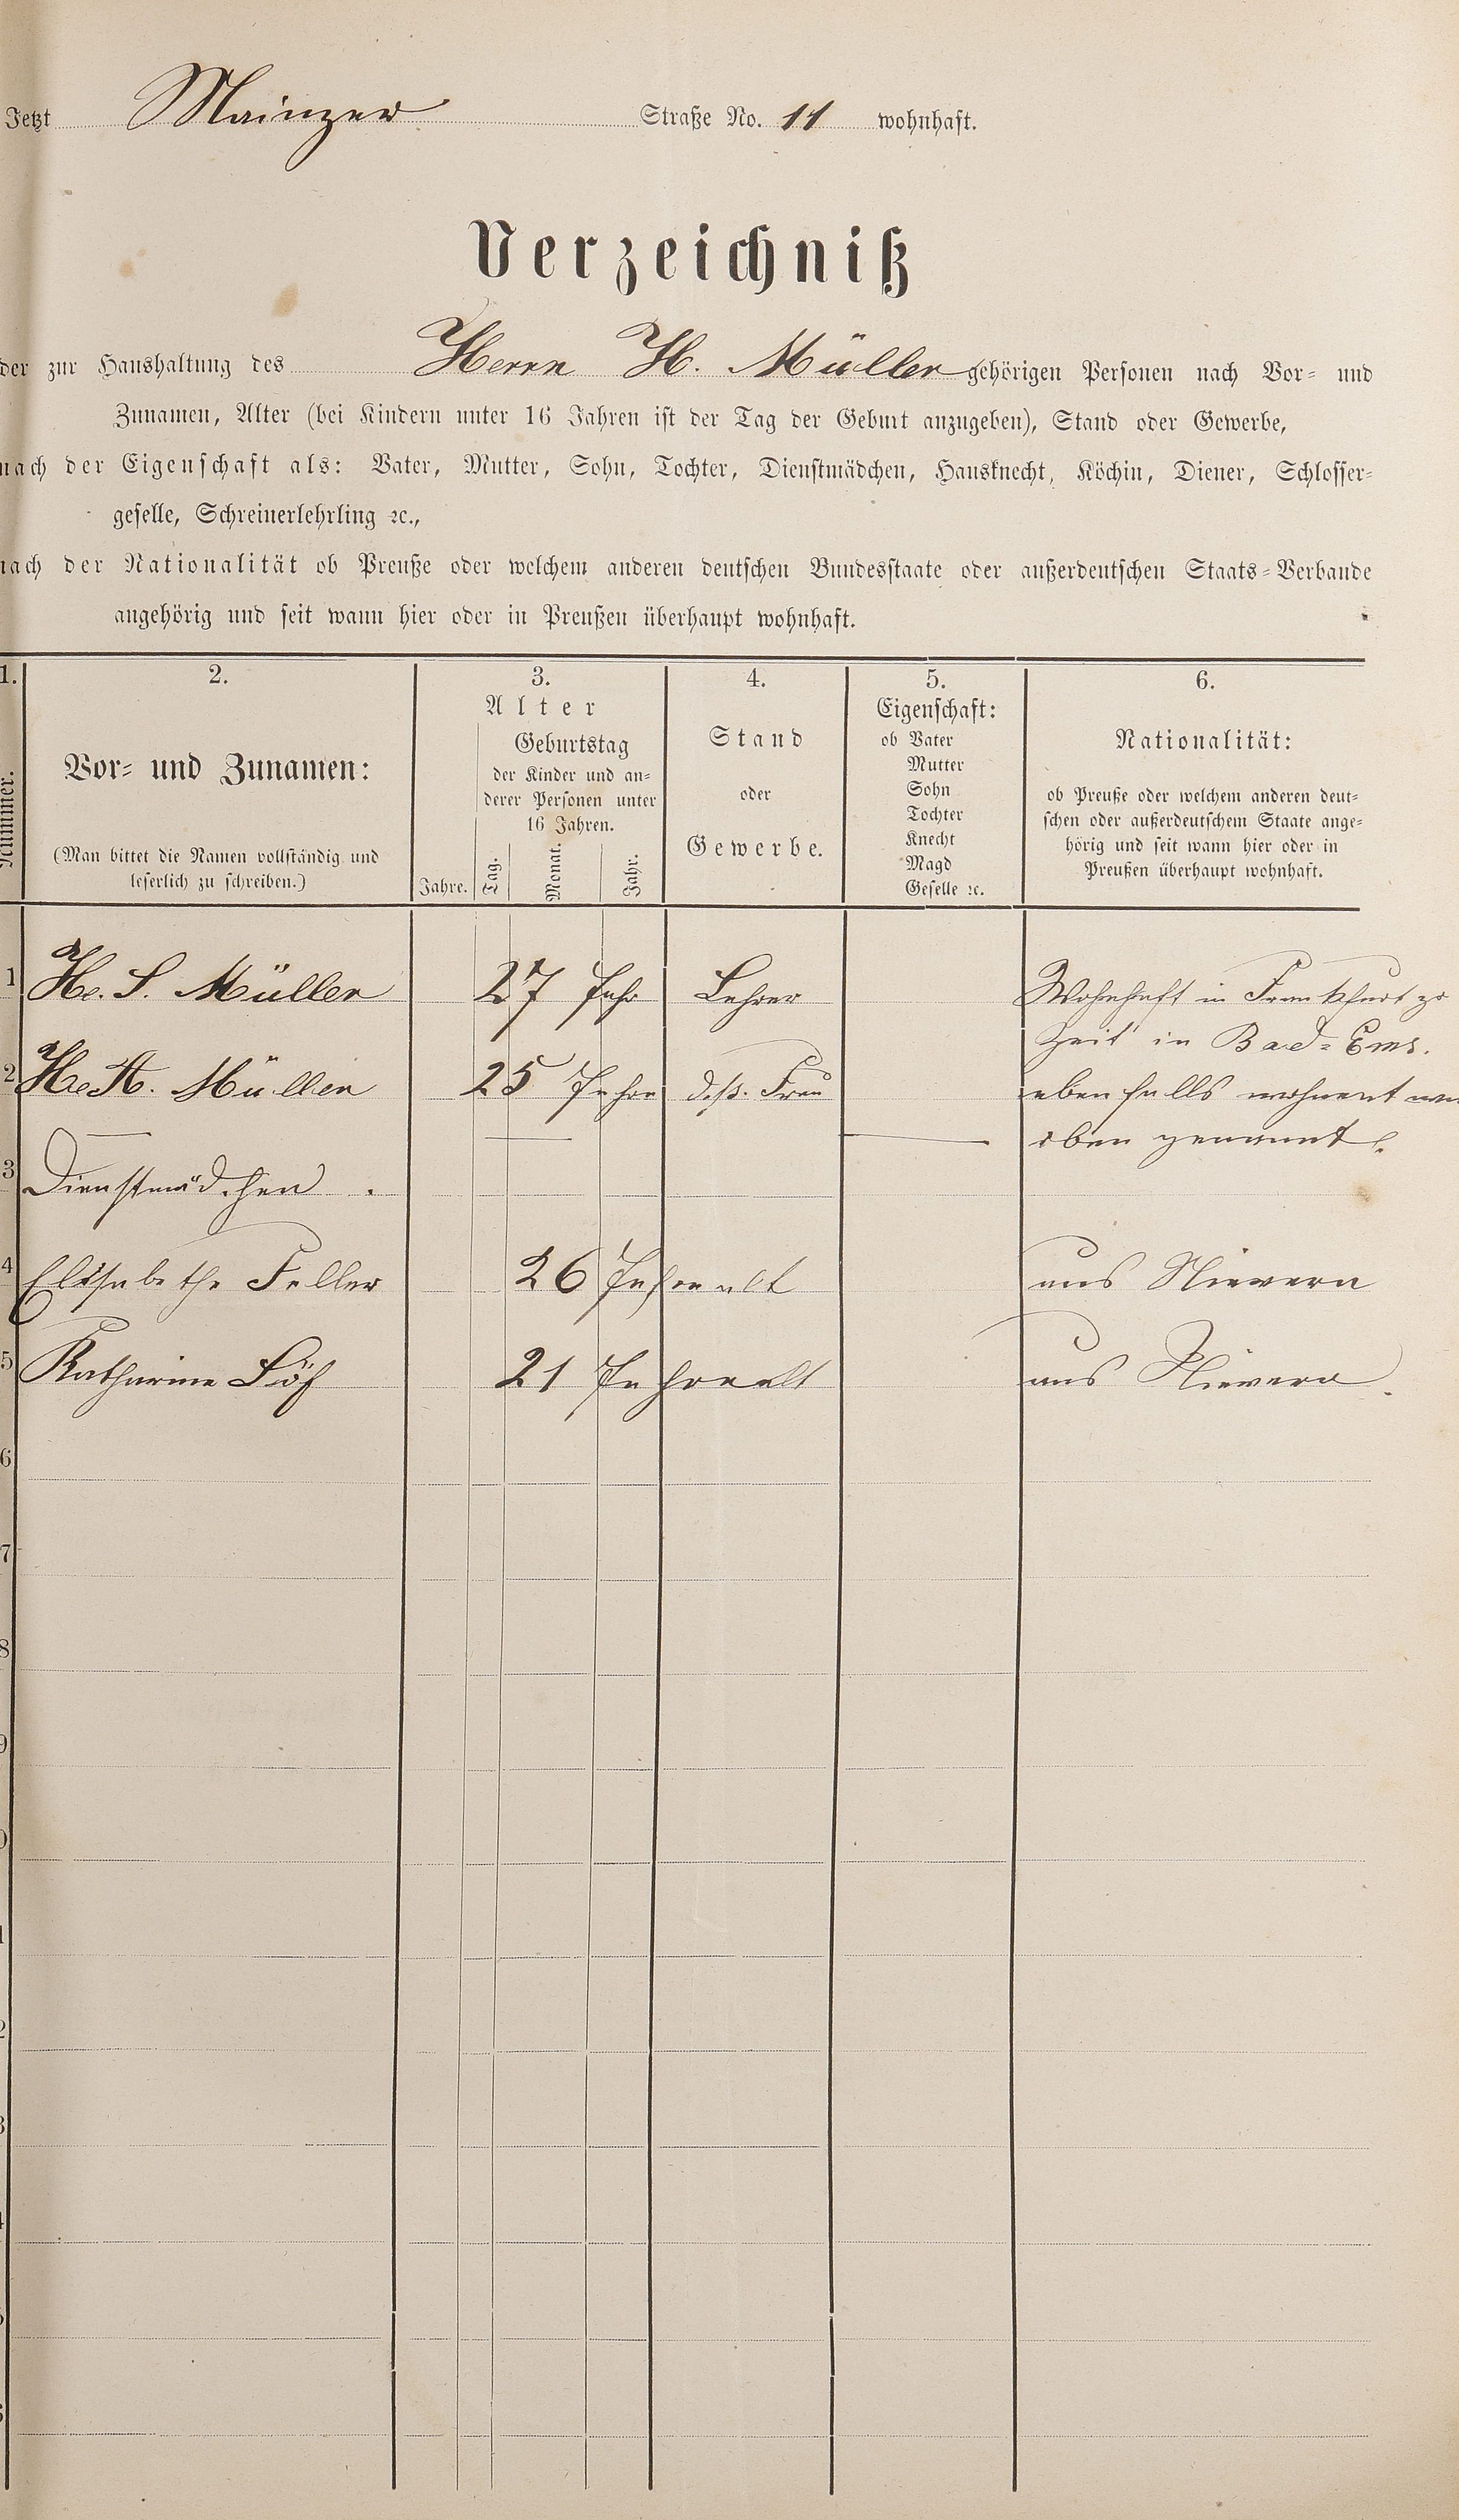 Jetzt Mainzer Straße No. 11 wohnhaft.
Verzeichniß
der zur Haushaltung des Herrn H. Müller gehörigen Personen nach Vor- und
Zunamen, Alter (bei Kindern unter 16 Jahren ist der Tag der Geburt anzugeben), Stand oder Gewerbe,
nach der Eigenschaft als: Vater, Mutter, Sohn, Tochter, Dienstmädchen, Hausknecht, Köchin, Diener, Schlosser-
geselle, Schreinerlehrling ꝛc.,
nach der Nationalität ob Preuße oder welchem anderen deutschen Bundesstaate oder außerdeutschen Staats-Verbande
angehörig und seit wann hier oder in Preußen überhaupt wohnhaft.
1. 2. 3. 4. 5. 6.
Nummer.
Vor- und Zunamen:
(Man bittet die Namen vollständig und
leserlich zu schreiben.)
Alter
Jahre.
Geburtstag
der Kinder und an-
derer Personen unter
16 Jahren.
Tag. Monat. Jahr.
Stand
oder
Gewerbe.
Eigenschaft:
ob Vater
Mutter
Sohn
Tochter
Knecht
Magd
Geselle ꝛc.
Nationalität:
ob Preuße oder welchem anderen deut-
schen oder außerdeutschem Staate ange-
hörig und seit wann hier oder in
Preußen überhaupt wohnhaft.
1 He. S. Müller 27 Jahr Lehrer Wohnhaft in Frankfurt zr
Zeit in Bad-Ems.
2 He A. Müller 25 Jahre deß. Frau ebenfalls wohnent
oben genannt.
3 Dienstmädchen.
4 Elisabethe Feller 26 Jahre alt aus Nievern
5 Katharine Löf 21 Jahre alt aus Nievern.
6
7
8
9